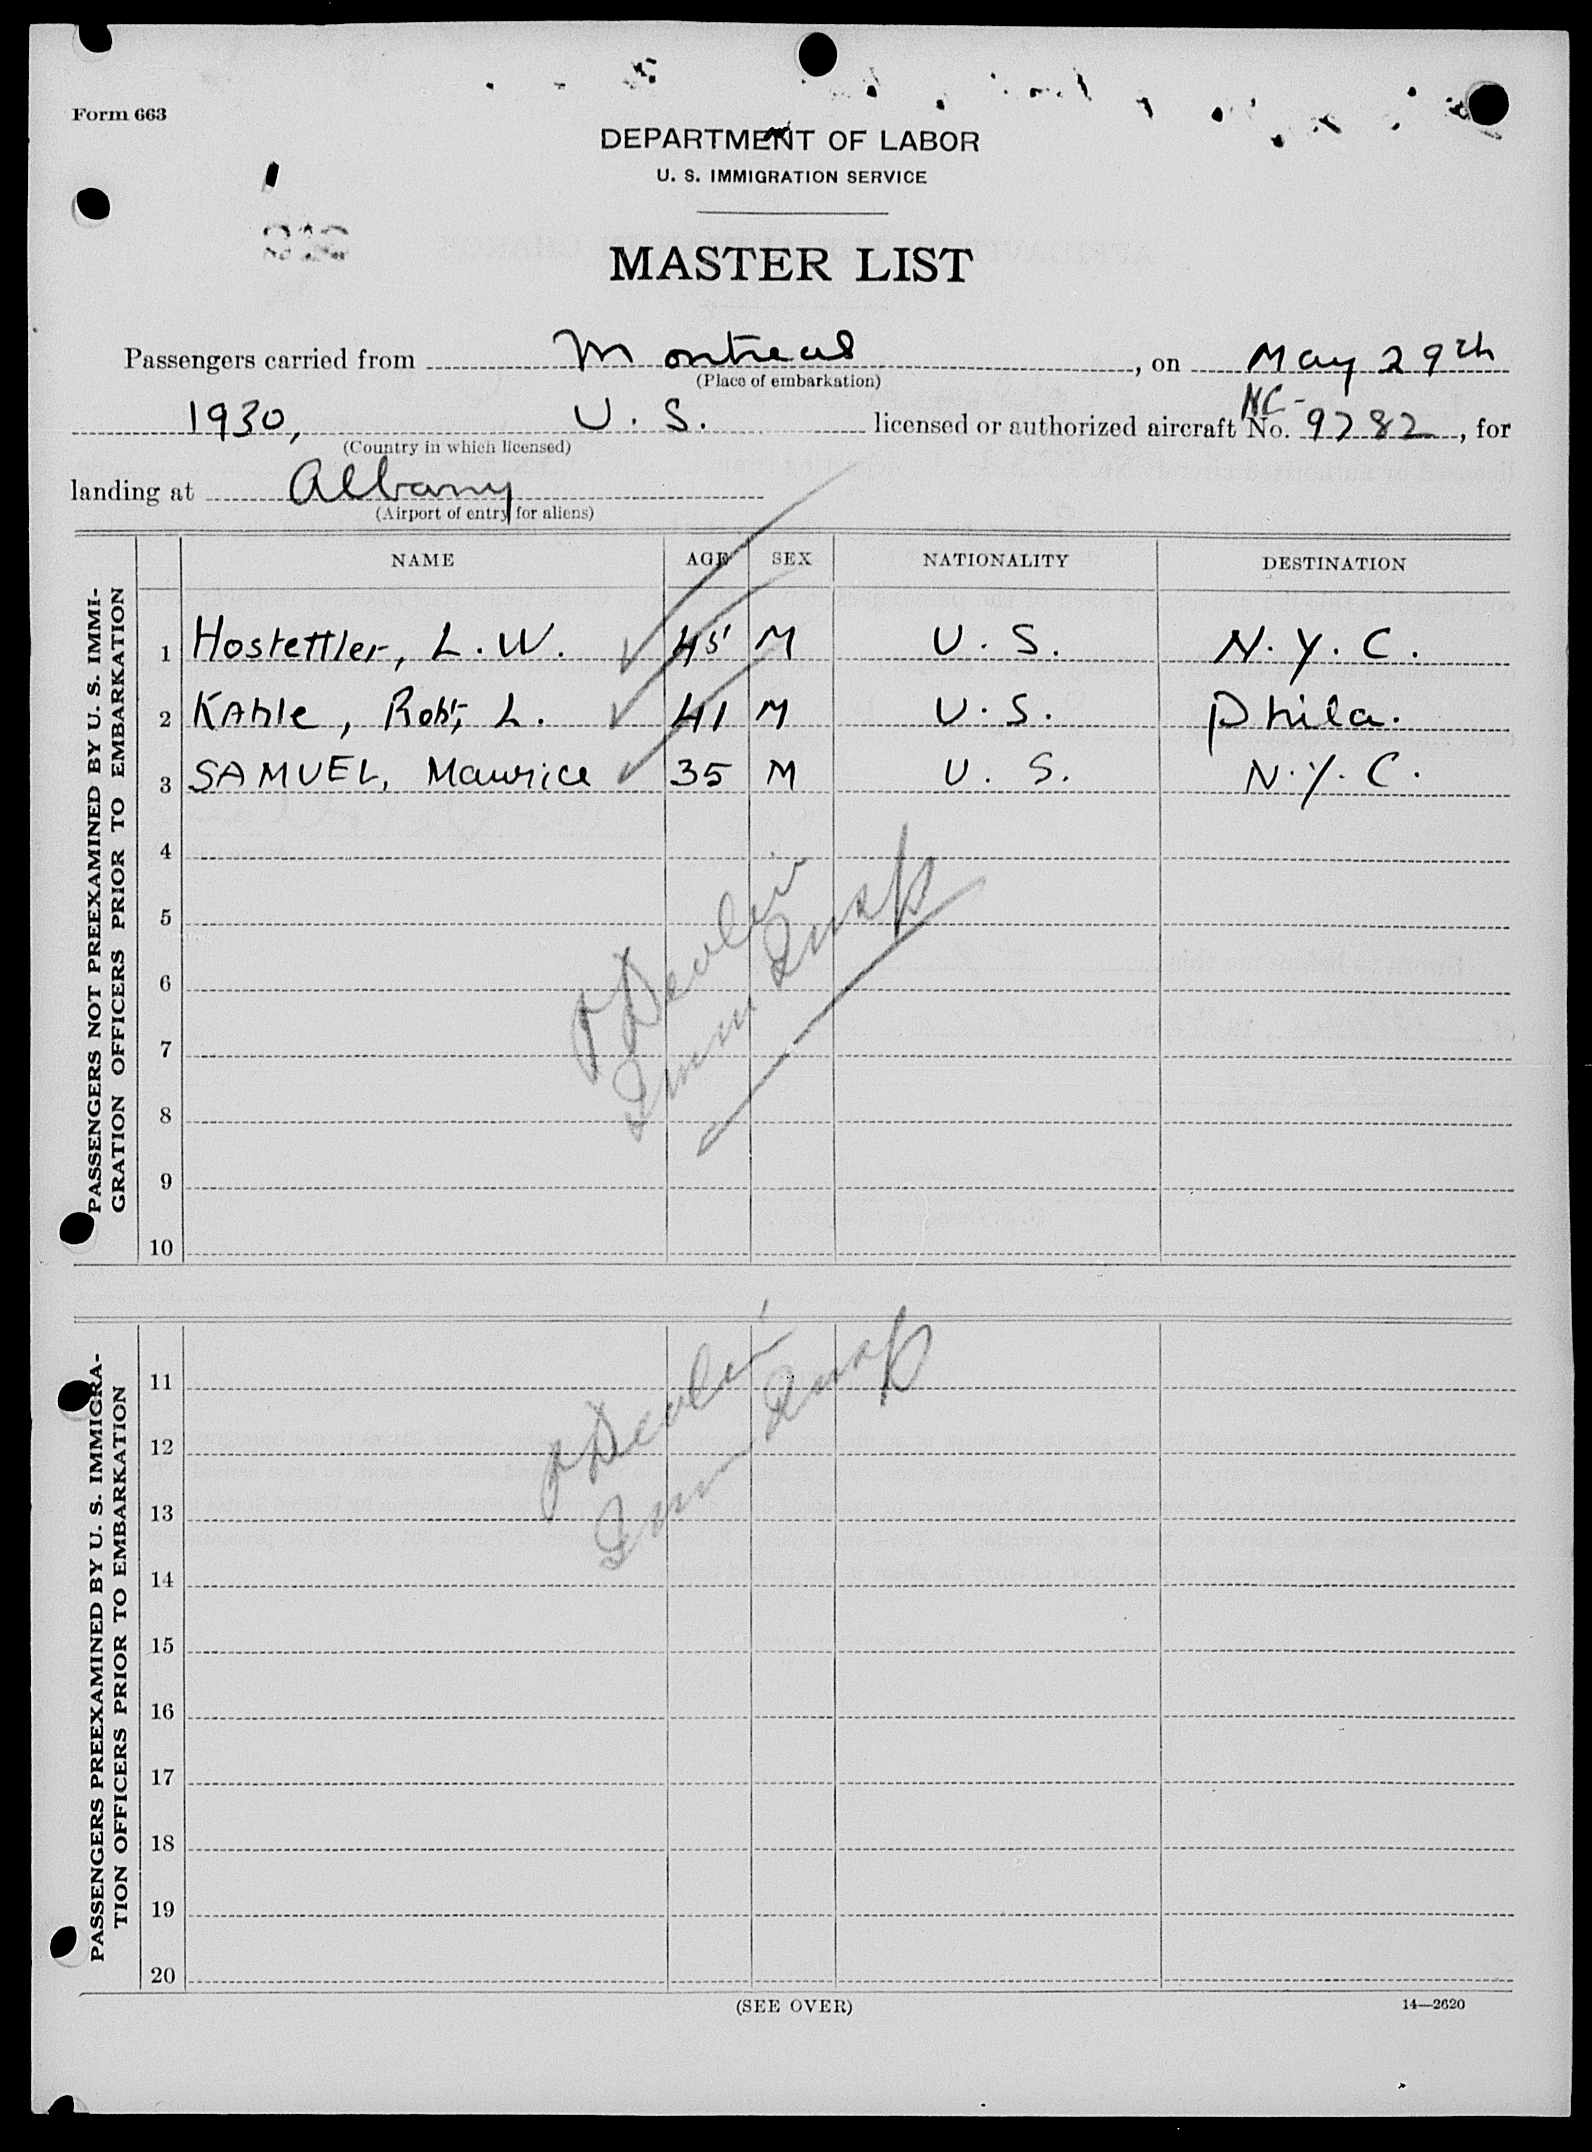 Form 663
DEPARTMENT OF LABOR
U. S. IMMIGRATION SERVICE
MASTER LIST
Passengers carried from Montreal, on May 29th
(Place of embarkation)
1930, U. S. licensed or authorized aircraft No. NC-9782, for
(Country in which licensed)
landing at Albany
(Airport of entry for aliens)
NAME AGE SEX NATIONALITY DESTINATION
PASSENGERS NOT PREEXAMINED BY U. S. IMMI-
GRATION OFFICERS PRIOR TO EMBARKATION
1 Hostettler, L. W. 45 M U. S. N. Y. C.
2 Kahle, Robt, L. 41 M U. S. Phila.
3 SAMUEL, Maurice 35 M U. S. N. Y. C.
4
5
6
7
8
9
10
Devlin
Imm Insp
PASSENGERS PREEXAMINED BY U. S. IMMIGRA-
TION OFFICERS PRIOR TO EMBARKATION
11
12
13
14
15
16
17
18
19
20
Devlin
Imm Insp
(SEE OVER)
14—2620